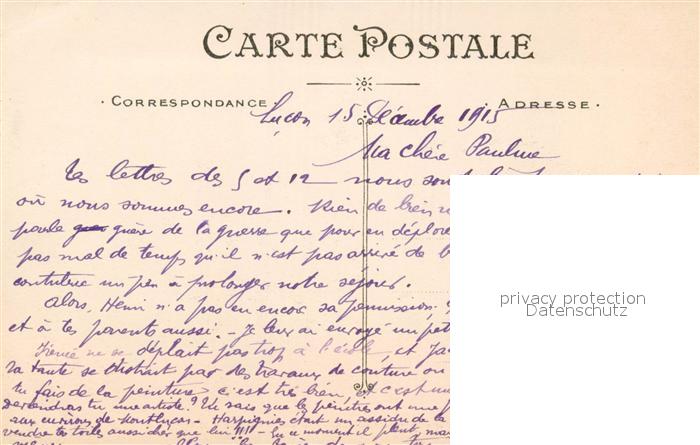 CARTE POSTALE
CORRESPONDANCE
ADRESSE
Luçon 15 Décembre 1915
Ma chère Pauline
Tes lettres des 5 et 12 nous sont
où nous sommes encore. Rien de bien
parle guère de la guerre que pour en déplore
pas mal de temps qu'il n'est pas arrivé de
contribue un peu à prolonger notre séjour.
Alors, Henri n'a pas eu encor sa permission;
et à tes parents aussi. - Je leur ai envoyé un
Irène ne se déplait pas trop à l'école, et
sa tante se distrait par des travaux de couture ou
tu fais de la peinture c'est très bien, et c'est
deviendras tu une artiste? Tu sais que les peintres ont une
aux environs de Montluçon - Harpignies étant un ancien de la
vendre ta toile aussi cher que lui!!!! - En ce moment il pleut,
privacy protection
Datenschutz